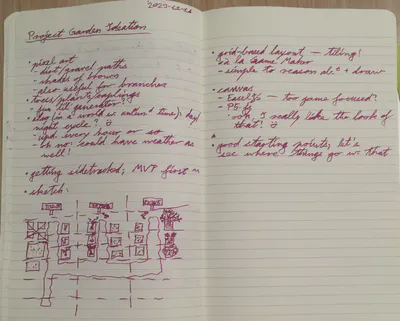 Project Garden Ideation
• pixel art
- dirt/gravel paths
- shades of browns
- also useful for branches
• trees/plants/saplings
- fun lil generator?
• day (in a world is
time); day/
night cycle? :)
- upd. every hour or so
- oh no! could have weather as
well!
• getting sidetracked; MVP first
• sketch:
• grid-based layout — tiling!
à la Game Maker
- simple to reason abt + draw
• canvas
- EaselJS — too game focused?
- P5.js
- ooh, I really like the look of
that! :)
• good starting points, let's
see where things go w that